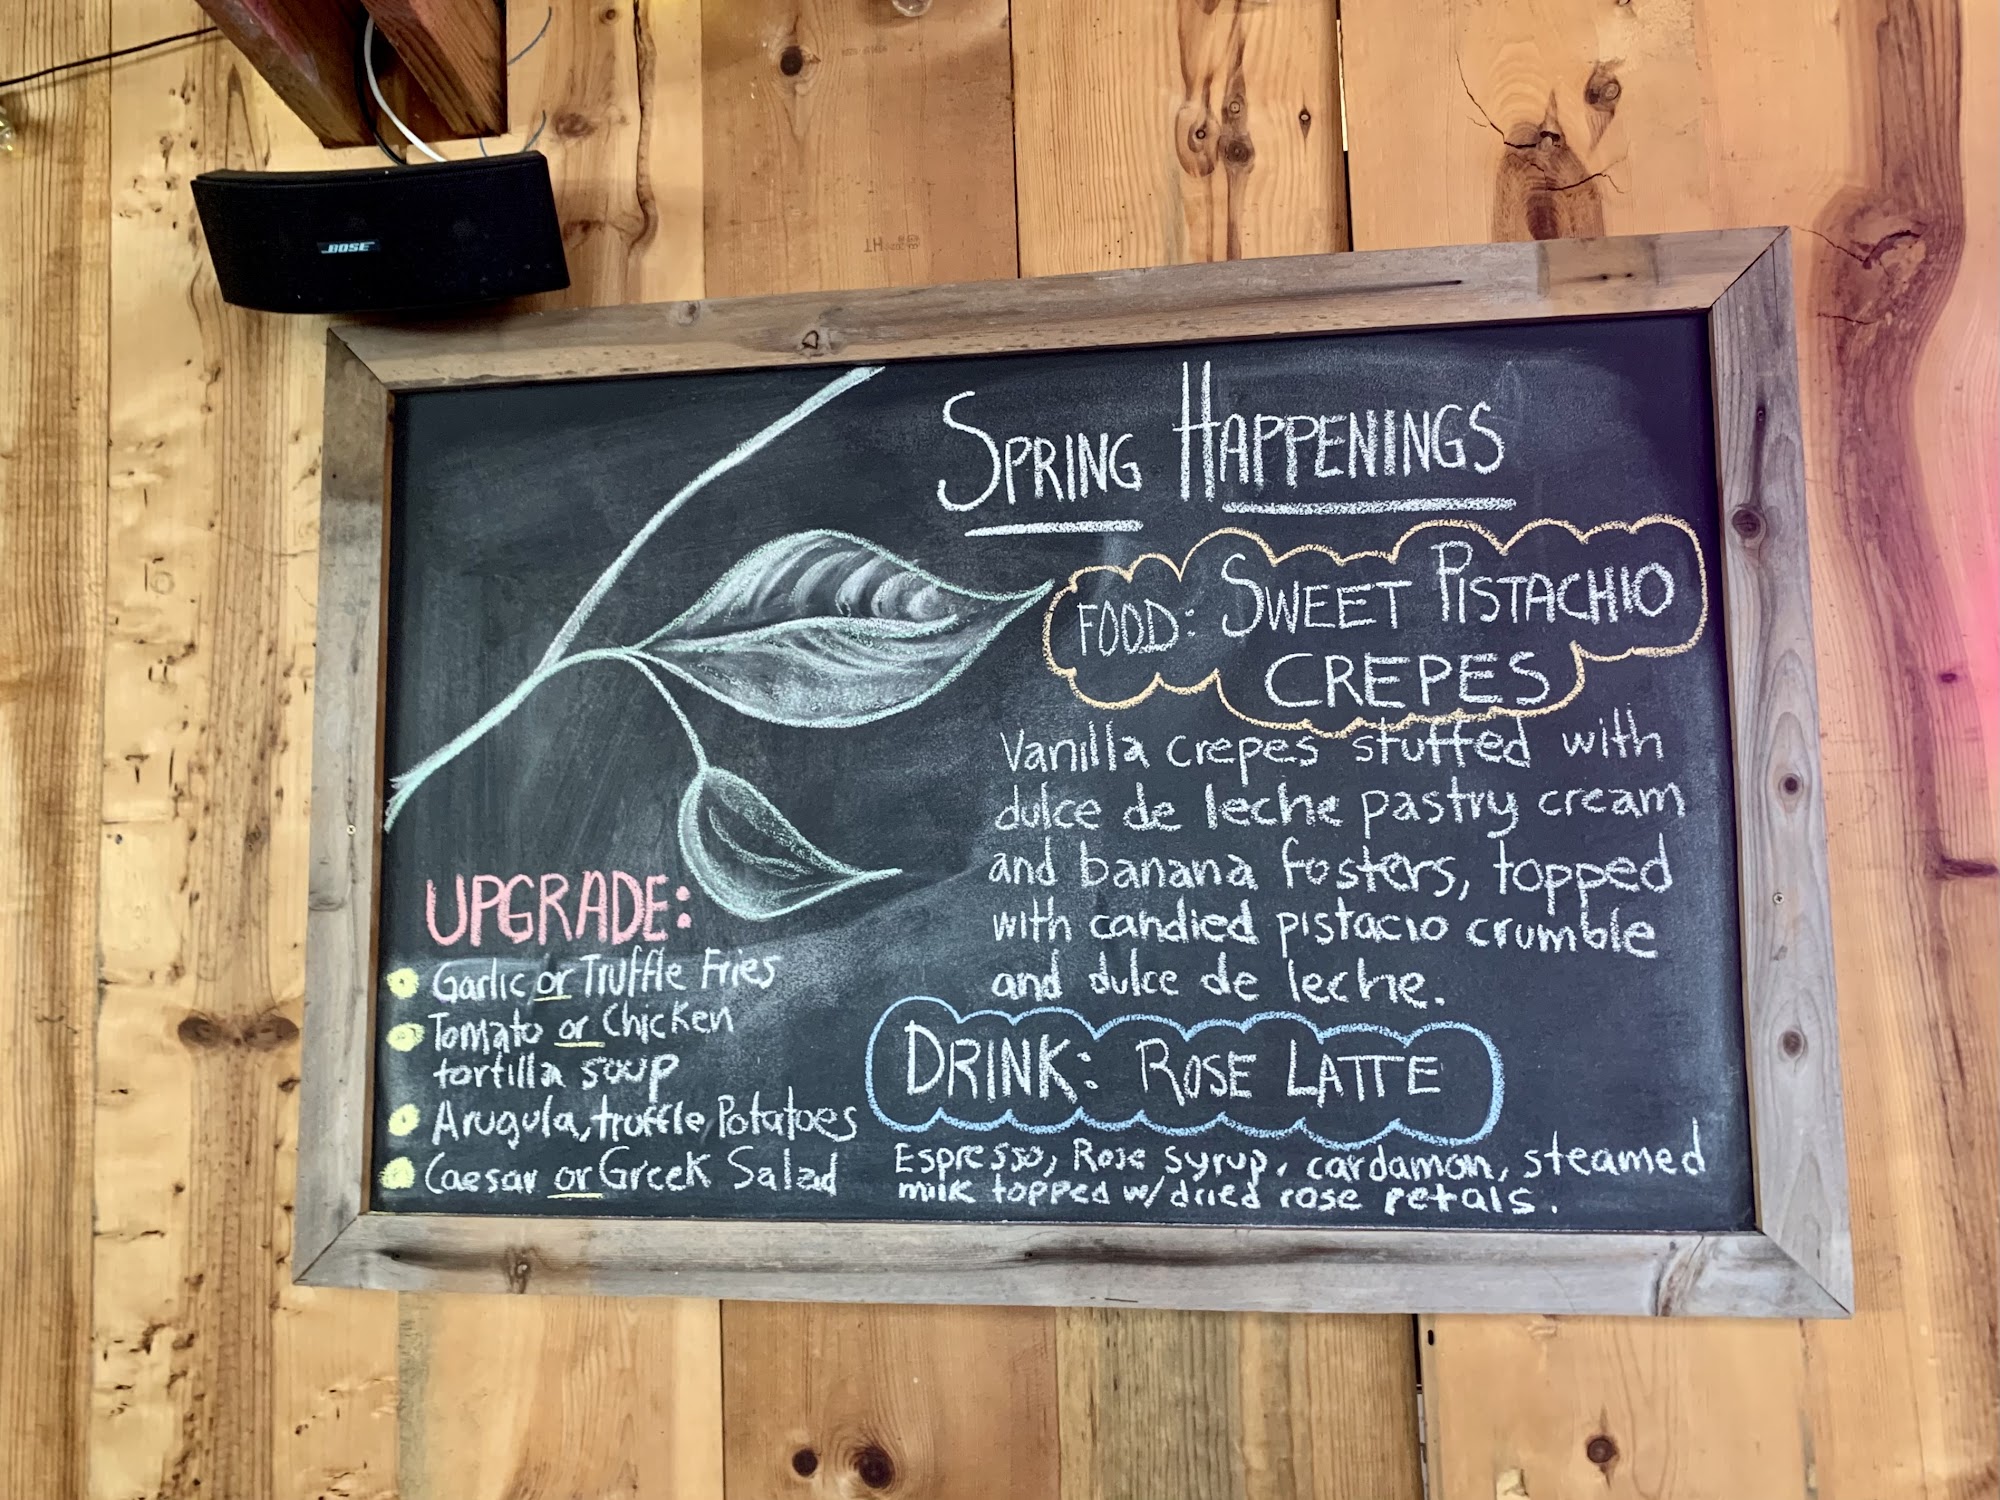 BOSE
HT
SPRING HAPPENINGS
FOOD: SWEET PISTACHIO
CREPES
Vanilla crepes stuffed with
dulce de leche pastry cream
and banana fosters, topped
with candied pistacio crumble
and dulce de leche.
DRINK: ROSE LATTE
Espresso, Rose syrup, cardamon, steamed
milk topped w/ dried rose petals.
UPGRADE:
Garlic or Truffle Fries
Tomato or Chicken
tortilla soup
Arugula, truffle Potatoes
Caesar or Greek Salad